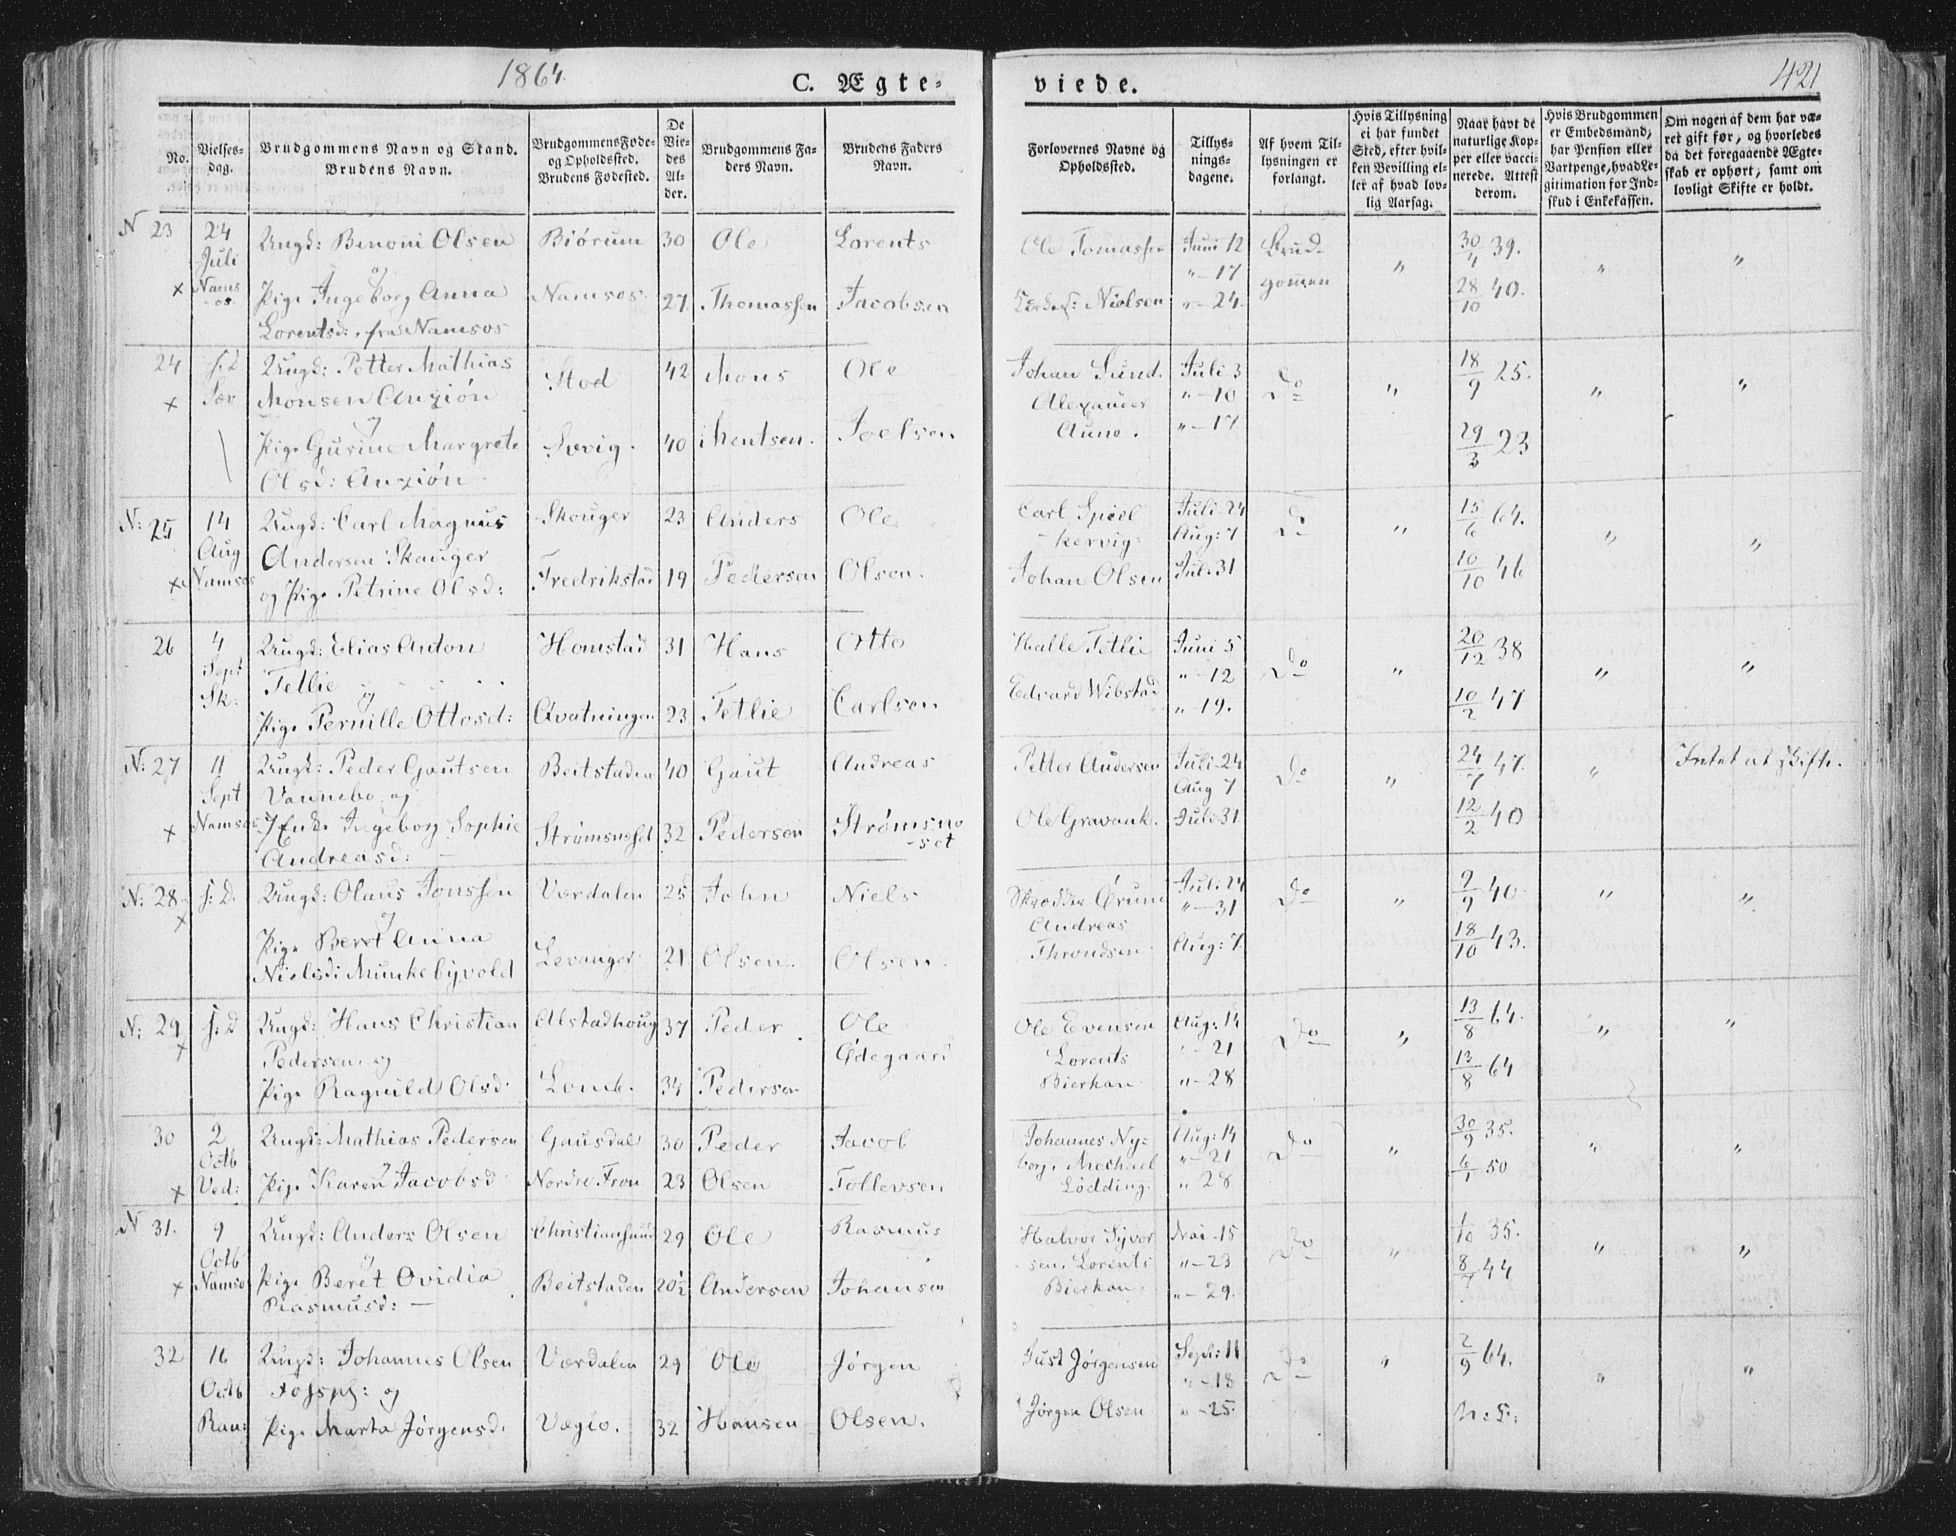 1864
C. Ægteviede.
421
No.
Vielses-
dag.
Brudgommens Navn og Stand.
Brudens Navn.
Brudgommens Føde-
og Opholdssted.
Brudens Fødested.
De
Vie-
des
Al-
der.
Brudgommens Fa-
ders Navn.
Brudens Faders
Navn.
Forlovernes Navne og
Opholdssted.
Tillys-
nings-
dagene.
Af hvem Til-
lysningen er
forlangt.
Hvis Tillysning
ei har fundet
Sted, efter hvil-
ken Bevilling el-
ler af hvad lov-
lig Aarsag.
Naar havt de
naturlige Kop-
per eller vacci-
nerede. Attest
derom.
Hvis Brudgommen
er Embedsmand,
har Pension eller
Vartpenge, hvad Le-
gitimation for Ind-
skud i Enkekassen.
Om nogen af dem har væ-
ret gift før, og hvorledes
da det foregaaende Ægte-
skab er ophørt, samt om
lovligt Skifte er holdt.
N 23 24 Ungk: Benoni Olsen Biørum 30 Ole Lorents Ole Tomassen Juni 12 Brud- 30/4 39.
Juli og " - 17 gommen " " "
x Nams Pige Ingeborg Anna Namsos 27 Thomassen Jacobsen Nielsen " - 24 28/10 40.
-os Lorentsd: fra Namsos
24 s:D Ungk: Petter Mathias Stod 42 Mons Ole Johan Sund. Juli 3 Do 18/9 25.
x Sæv Monsen Anziøn Alexander " - 10 " " "
og Aune. " - 17
Pige Gurine Margrete Sævig. 40 Mentsen. Joelsen 29/3 23
Olsd: Anziøn
N: 25 14 Ungk: Carl Magnus Skouger 23 Anders Ole Carl Spiel Juli 24 Do 15/6 64.
Aug Andersen Skauger kervig: Aug: 7 " " "
x Namsos og Pige Petrine Olsd: Fredrikstad 19 Pedersen Olsen. Johan Olsen Juli 31 10/10 46
26 4 Ungk: Elias Anton Homstad 31 Hans Otto Halle Tetlie Juni 5 20/12 38
Sept Tetlie og " - 12 Do " " "
Sk: Pige Pernille Ottosd: Qvatningen 23 Tetlie Carlsen Edvard Wibstad " 19. 10/2 47
N: 27 11 Ungk: Peder Gautsen Beitstaden 40 Gaut Andreas Petter Andersen Juli 24 Do 24/7 47. Intet at Skifte.
Sept Vannebo og Aug 7 " "
x Namsos Enke Ingeborg Sophie Strømsneset 32 Pedersen Strømsne Ole Gravank. Juli 31 12/2 40
Andreasd: -set
N: 28 s:D. Ungk: Olaus Jonssen Værdalen 25 John Niels Skrædder Ørum Juli 24 Do 9/9 40
x og Andreas " - 31 " " "
Pige Beret Anna Levanger 21 Olsen. Olsen. Throndsen. Aug: 7 18/10 43.
Nielsd: Munkebyvold
N: 29 s:D Ungk: Hans Christian Alstadhoug 37 Peder Ole Ole Evensen Aug: 14 Do 13/8 64.
x Pedersen og Ødegaard Lorents " - 21 " " "
Pige Ragnild Olsd. Lomb. 34 Pedersen Bierkan " - 28 13/8 64
30 2 Ungk: Mathias Pedersen Gausdal 30 Peder Jacob Johannes Ny- Aug: 14 Do 30/9 35.
Octb og borg, Mechael " - 21 " " "
x Ved: Pige Karen Jacobsd Nordre Fron 23 Olsen Tollevsen Lødding. " 28 6/1 50
N 31. 9 Ungk: Anders Olsen Christiansund 29 Ole Rasmus Halvor Syver Mai - 15 Do 1/10 35.
Octb og sen, Lorents " - 23 " " "
x Namsos Pige Beret Ovidia Beitstaden 20½ Andersen Johansen Bierkan. " - 29. 8/7 44
Rasmusd: -
32 16 Ungk: Johannes Olsen Værdalen 29 Ole Jørgen Just Jørgensen Sept: 11 Do 2/9 64.
Octb og " - 18 " " "
Ran: Pige Marta Jørgensd. Vægio. 32 Hansen Olsen. Jørgen Olsen " - 25.